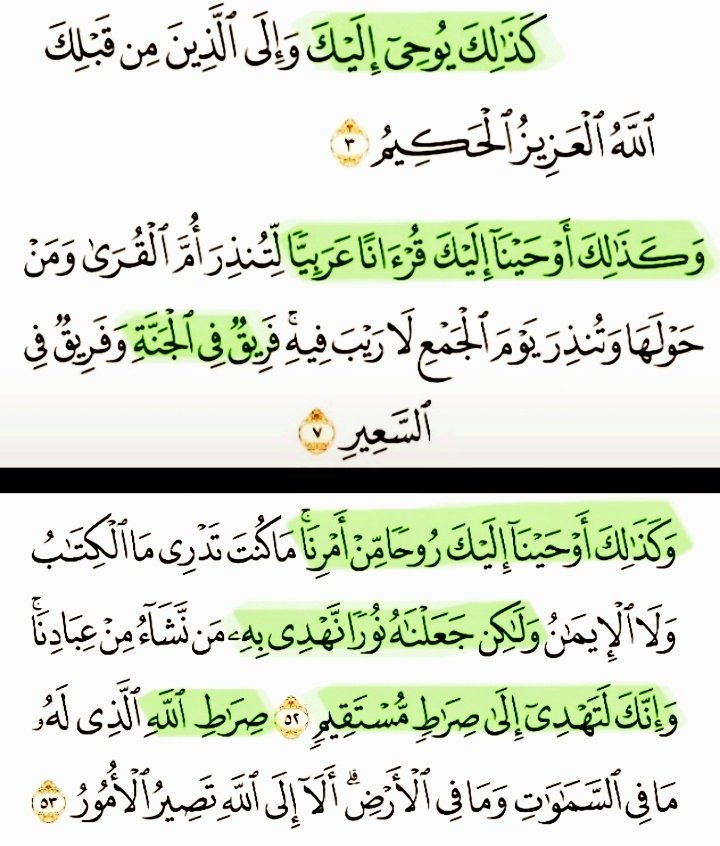 كَذَٰلِكَ يُوحِىٓ إِلَيْكَ وَإِلَى ٱلَّذِينَ مِن قَبْلِكَ
ٱللَّهُ ٱلْعَزِيزُ ٱلْحَكِيمُ ٣
وَكَذَٰلِكَ أَوْحَيْنَآ إِلَيْكَ قُرْءَانًا عَرَبِيًّا لِّتُنذِرَ أُمَّ ٱلْقُرَىٰ وَمَنْ
حَوْلَهَا وَتُنذِرَ يَوْمَ ٱلْجَمْعِ لَا رَيْبَ فِيهِ ۚ فَرِيقٌ فِى ٱلْجَنَّةِ وَفَرِيقٌ فِى
ٱلسَّعِيرِ ٧
وَكَذَٰلِكَ أَوْحَيْنَآ إِلَيْكَ رُوحًا مِّنْ أَمْرِنَا ۚ مَا كُنتَ تَدْرِى مَا ٱلْكِتَٰبُ
وَلَا ٱلْإِيمَٰنُ وَلَٰكِن جَعَلْنَٰهُ نُورًا نَّهْدِى بِهِۦ مَن نَّشَآءُ مِنْ عِبَادِنَا ۚ
وَإِنَّكَ لَتَهْدِىٓ إِلَىٰ صِرَٰطٍ مُّسْتَقِيمٍ ٥٢ صِرَٰطِ ٱللَّهِ ٱلَّذِى لَهُۥ
مَا فِى ٱلسَّمَٰوَٰتِ وَمَا فِى ٱلْأَرْضِ ۗ أَلَآ إِلَى ٱللَّهِ تَصِيرُ ٱلْأُمُورُ ٥٣